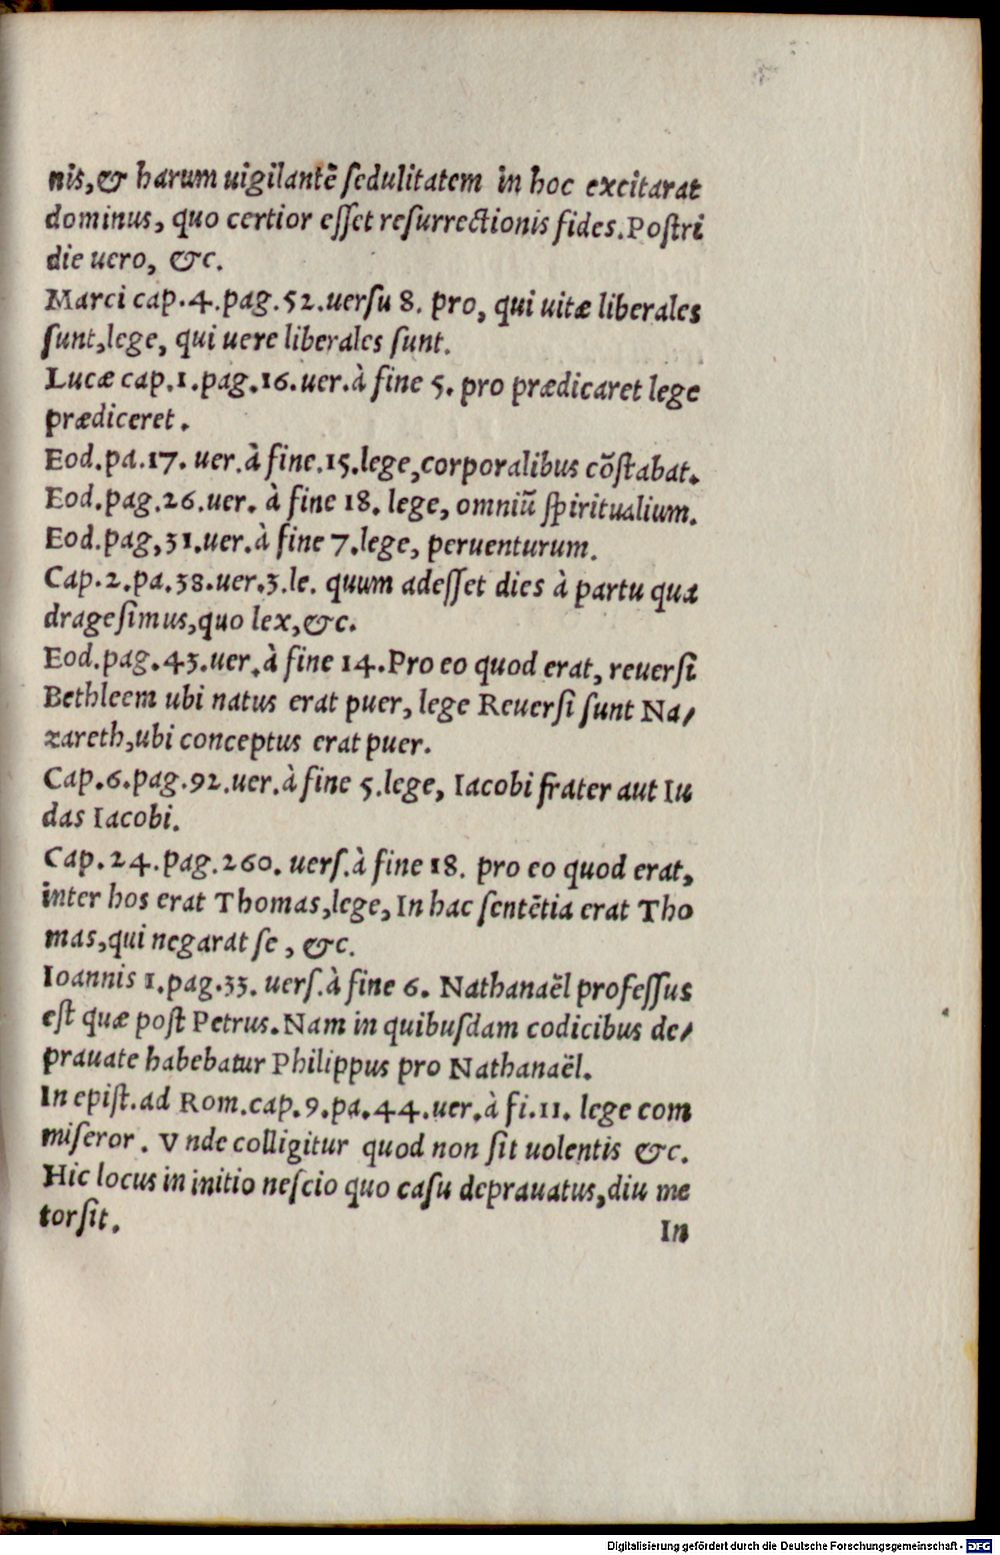 nis, & harum uigilantē sedulitatem in hoc excitarat
dominus, quo certior esset resurrectionis fides. Postri
die uero, &c.
Marci cap. 4. pag. 52. uersu 8. pro, qui uitæ liberales
sunt, lege, qui uere liberales sunt.
Lucæ cap. 1. pag. 16. uer. à fine 5. pro prædicaret lege
prædiceret.
Eod. pa. 17. uer. à fine. 15. lege, corporalibus cōstabat.
Eod. pag. 26. uer. à fine 18. lege, omniū spiritualium.
Eod. pag, 31. uer. à fine 7. lege, peruenturum.
Cap. 2. pa. 38. uer. 3. le. quum adesset dies à partu qua
dragesimus, quo lex, &c.
Eod. pag. 43. uer. à fine 14. Pro eo quod erat, reuersi
Bethleem ubi natus erat puer, lege Reuersi sunt Na/
zareth, ubi conceptus erat puer.
Cap. 6. pag. 92. uer. à fine 5. lege, Iacobi frater aut Iu
das Iacobi.
Cap. 24. pag. 260. uers. à fine 18. pro eo quod erat,
inter hos erat Thomas, lege, In hac sentētia erat Tho
mas, qui negarat se, &c.
Ioannis 1. pag. 33. uers. à fine 6. Nathanaël professus
est quæ post Petrus. Nam in quibusdam codicibus de/
prauate habebatur Philippus pro Nathanaël.
In epist. ad Rom. cap. 9. pa. 44. uer. à fi. 11. lege com
miseror. Vnde colligitur quod non sit uolentis &c.
Hic locus in initio nescio quo casu deprauatus, diu me
torsit.
In
Digitalisierung gefördert durch die Deutsche Forschungsgemeinschaft - DFG